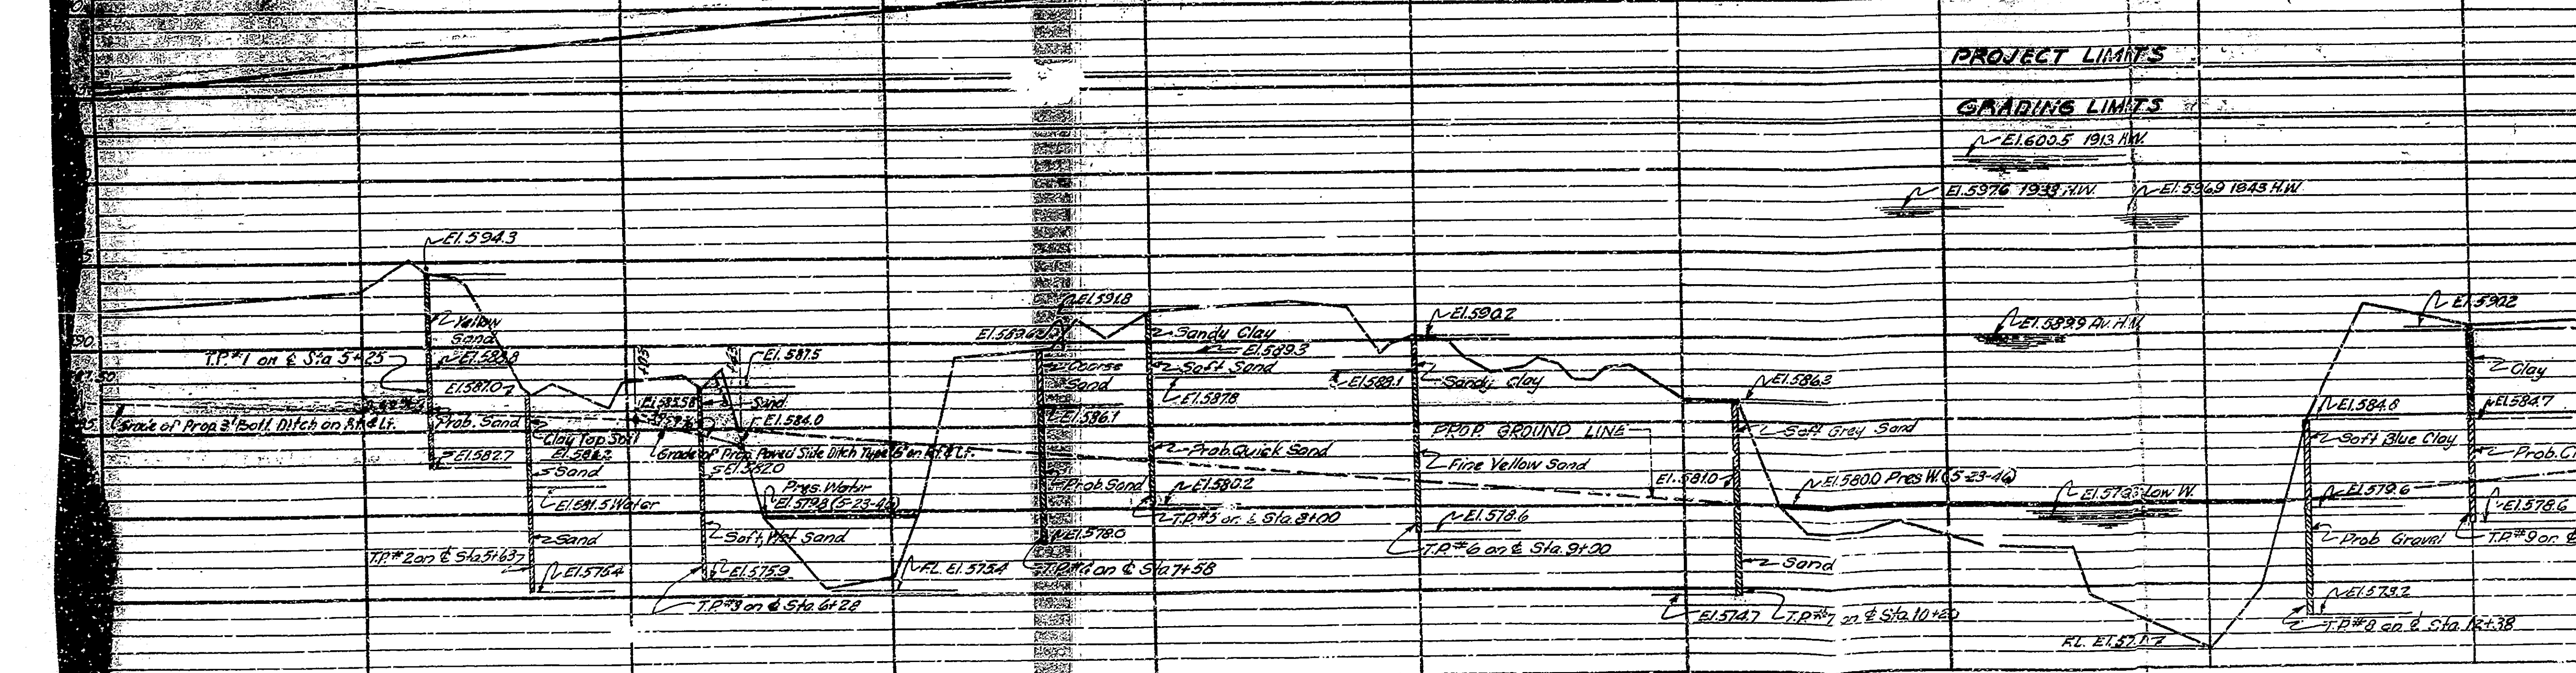 PROJECT LIMITS
GRADING LIMITS
El. 600.5 1913 H.W.
El. 597.6 1933 H.W.
El. 596.9 1943 H.W.
El. 594.3
Yellow
Sand
T.P. #1 on ℄ Sta 5+25
El. 587.0
Grade of Prop. 3' Bott. Ditch on Rt. & Lf.
Prob. Sand
El. 582.7
Clay Top Soil
Sand
El. 581.5 Water
Sand
T.P. #2 on ℄ Sta 5+63
El. 575.4
El. 587.5
El. 585.58
Sand
El. 584.0
Grade of Prop. Paved Side Ditch Type "G" on Rt. & Lf.
El. 582.0
Pres. Water
El. 579.8 (5-23-46)
Soft, Wet Sand
El. 575.9
T.P. #3 on ℄ Sta. 6+28
F.L. El. 575.4
El. 591.8
Coarse
Sand
El. 586.1
Prob. Sand
El. 578.0
T.P. #4 on ℄ Sta 7+58
Sandy Clay
El. 589.3
Soft Sand
El. 587.8
Prob. Quick Sand
El. 580.2
T.P. #5 on ℄ Sta. 8+00
El. 590.2
El. 588.1
Sandy Clay
PROP. GROUND LINE
Fine Yellow Sand
El. 578.6
T.P. #6 on ℄ Sta. 9+00
El. 586.3
Soft Grey Sand
El. 581.0
El. 580.0 Pres. W. (5-23-46)
Sand
El. 574.7
T.P. #7 on ℄ Sta. 10+20
El. 589.9 Av. H.W.
Low W.
F.L.
El. 584.8
Soft Blue Clay
El. 579.6
Prob. Gravel
El. 573.2
T.P. #8 on ℄ Sta. 12+38
El. 590.2
Clay
El. 584.7
Prob. Cl
El. 578.6
T.P. #9 on ℄